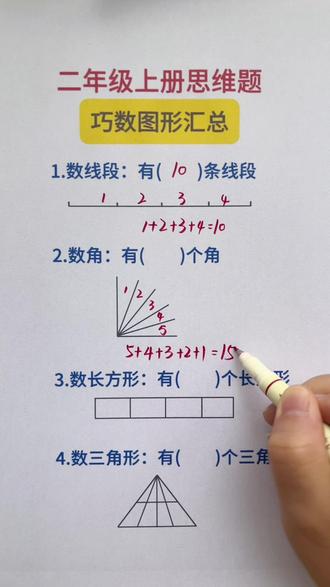 二年级上册思维题
巧数图形汇总
1.数线段：有( 10 )条线段
1 2 3 4
1+2+3+4=10
2.数角：有( )个角
1 2 3 4 5
5+4+3+2+1=15
3.数长方形：有( )个长 形
4.数三角形：有( )个三角